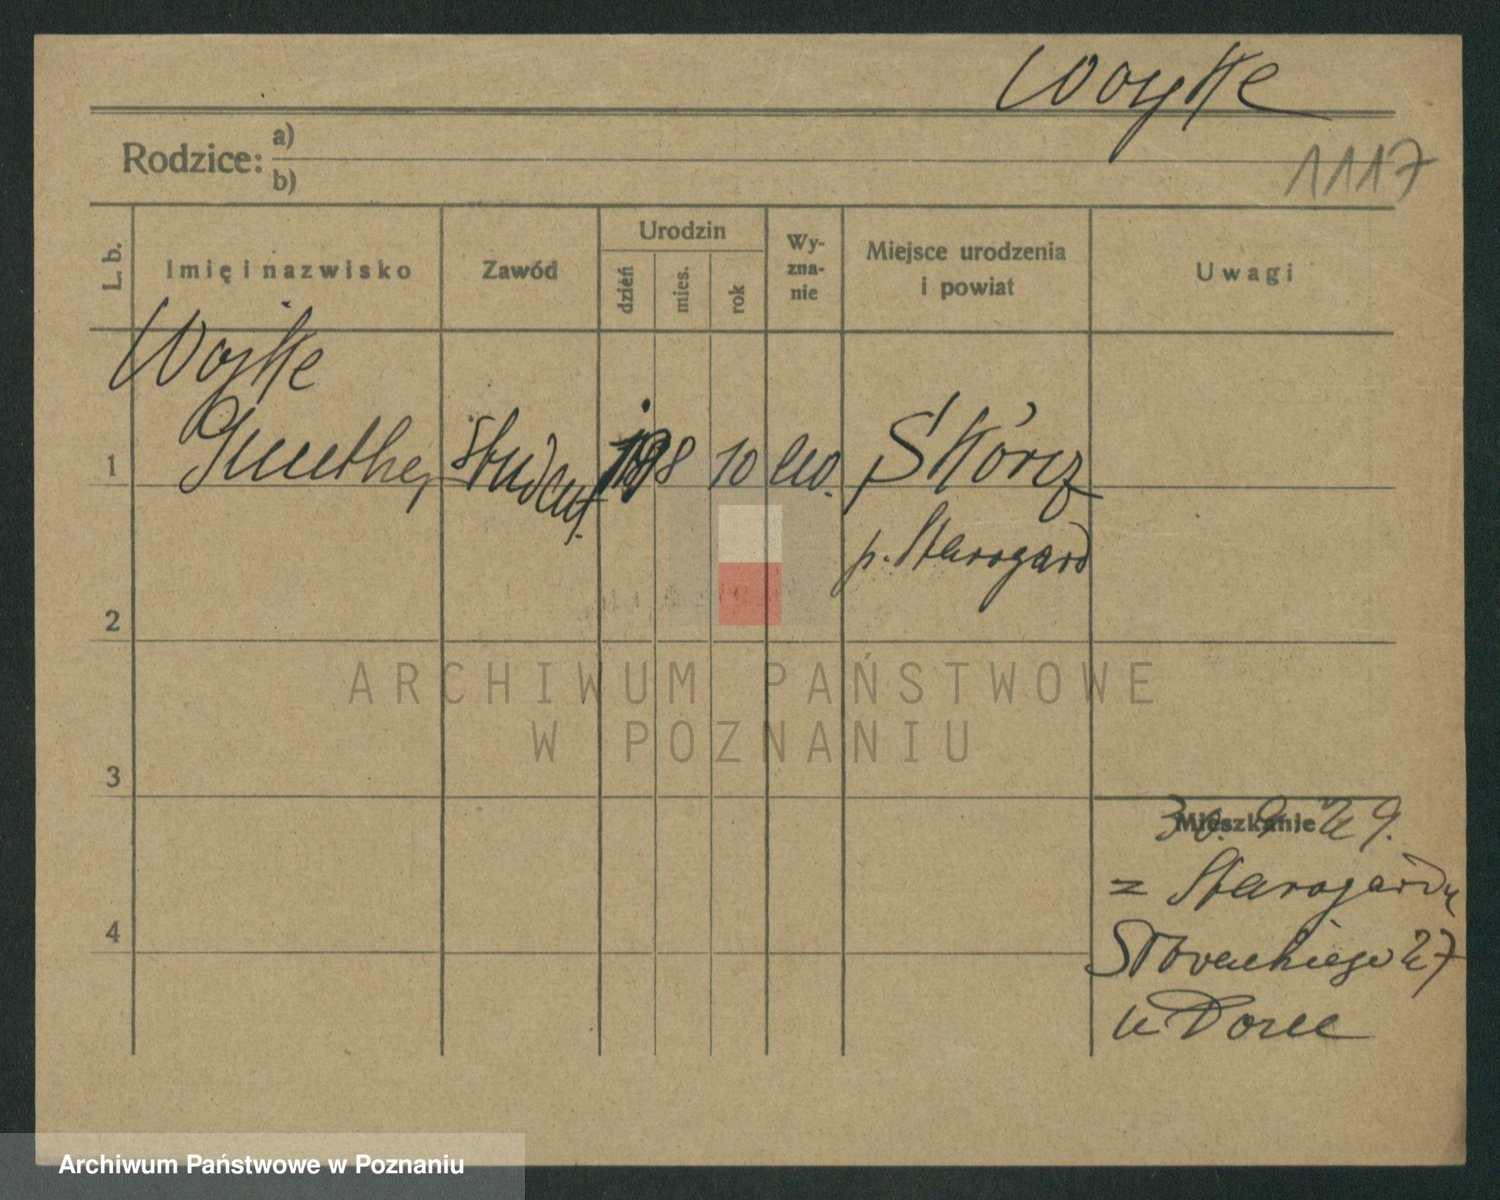 Woytke
Rodzice: a)
b)
1117
L. b.
Imię i nazwisko
Zawód
Urodzin
dzień
mies.
rok
Wy-
zna-
nie
Miejsce urodzenia
i powiat
Uwagi
Wojtke
1 Guenther student 8 10 ew. Skórcz
p. Starogard
2
ARCHIWUM PAŃSTWOWE
W POZNANIU
3
Mieszkanie
30. 9. 29.
z Starogardu
Słowackiego 27
u
4
Archiwum Państwowe w Poznaniu